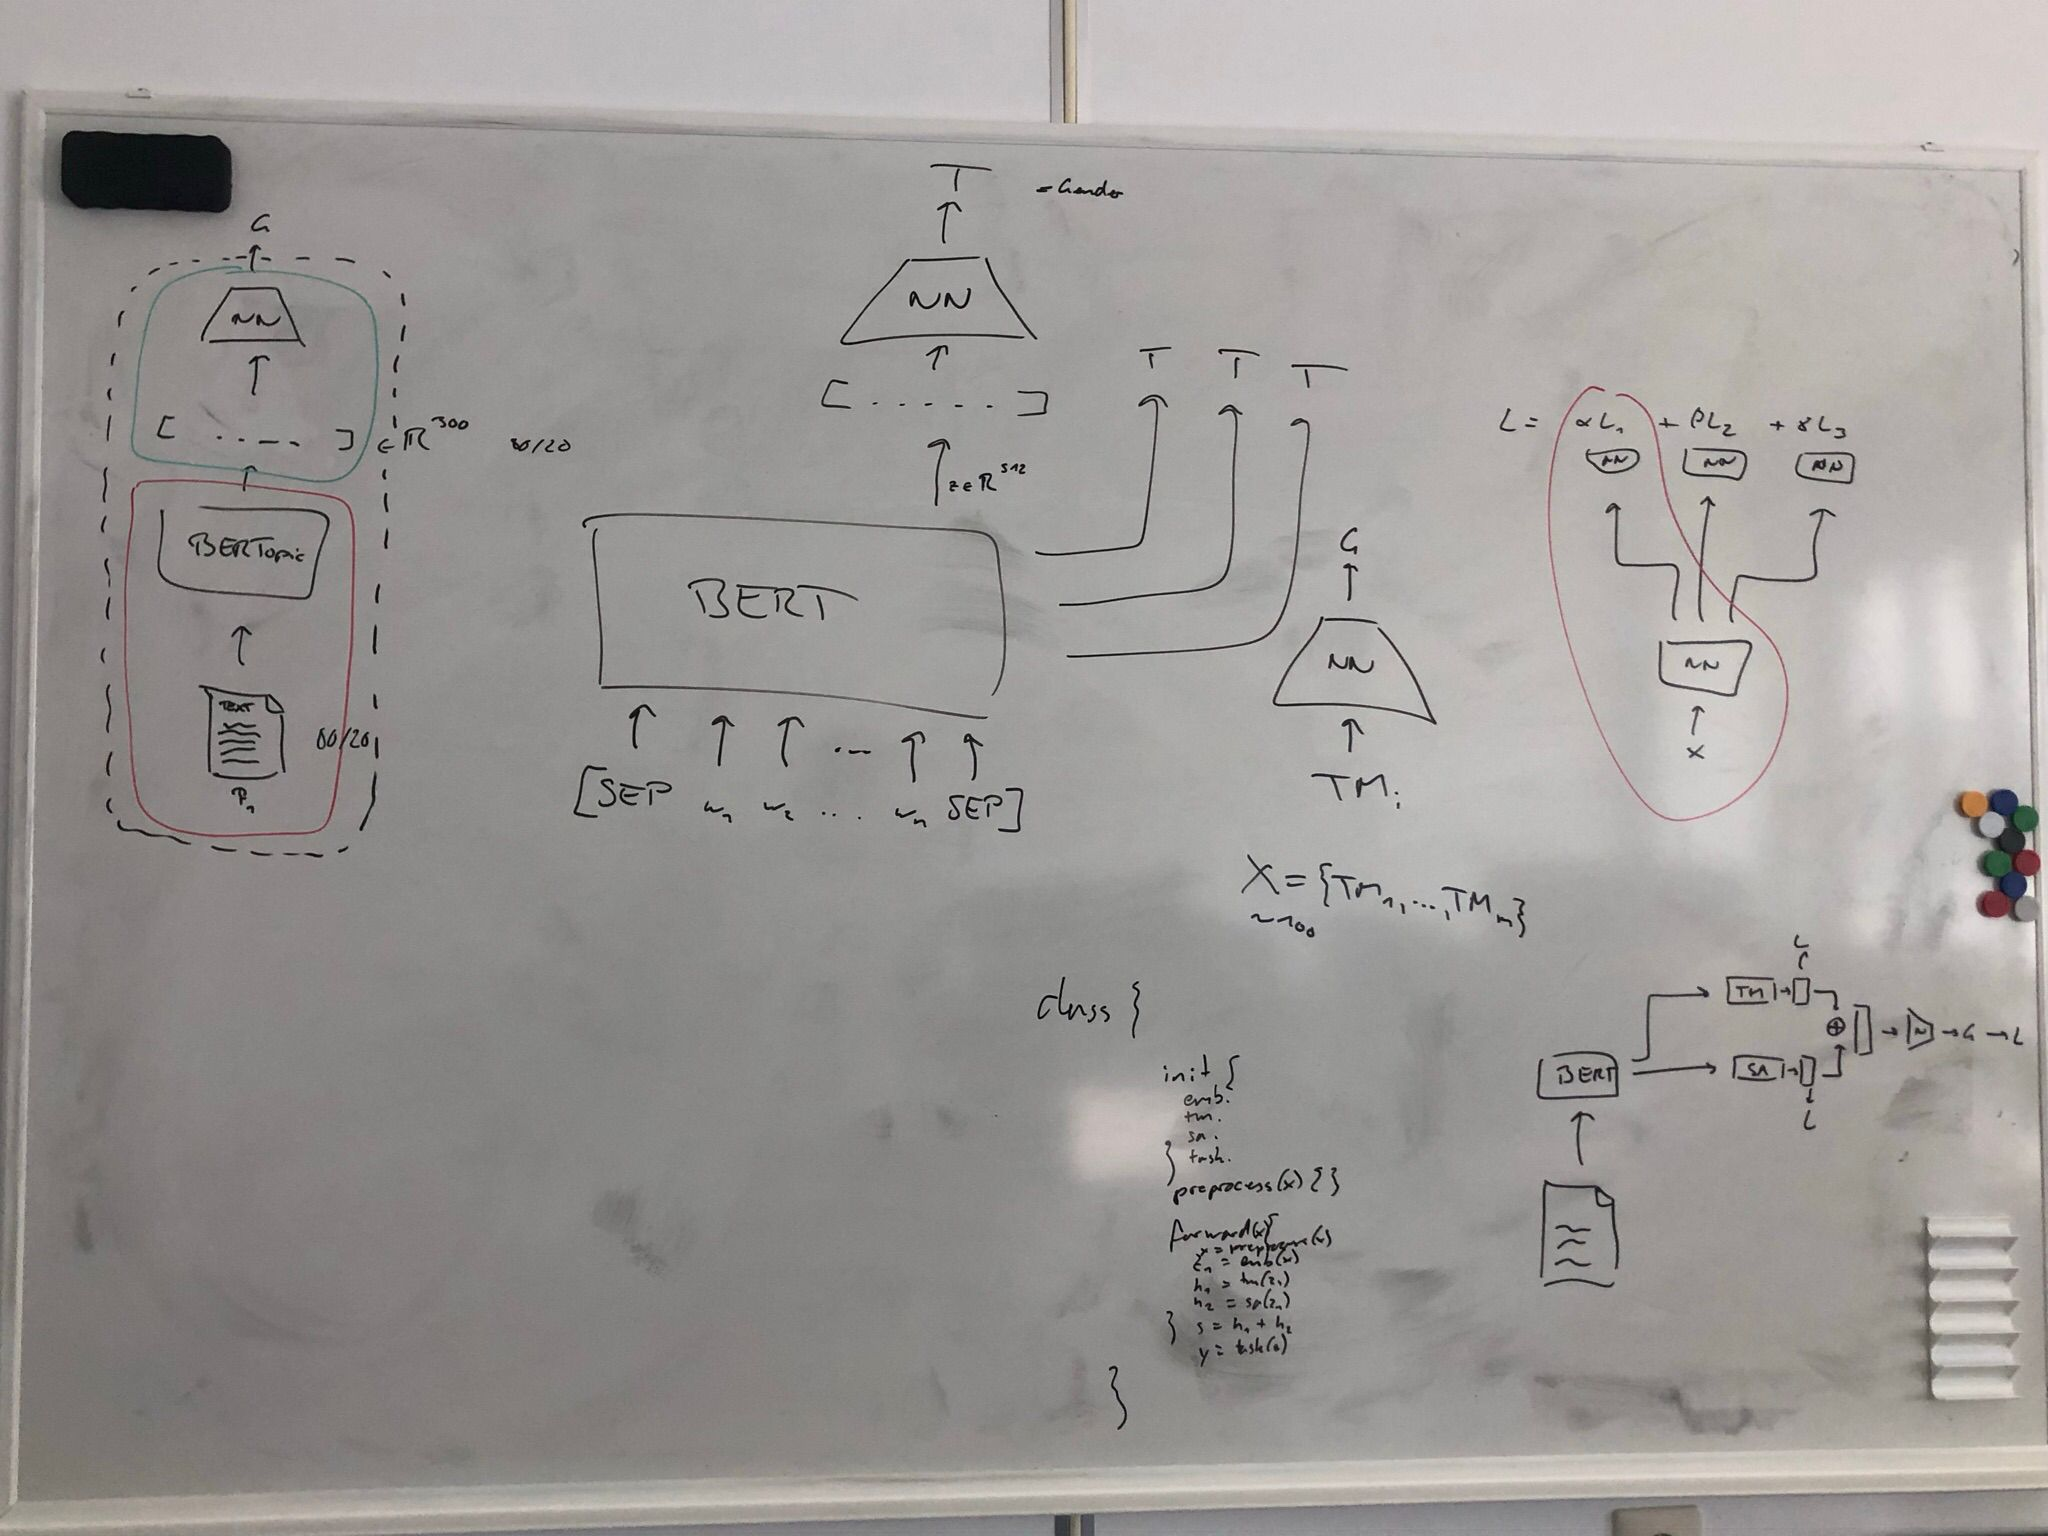 G
NN
[ ..--- ] ∈ ℝ³⁰⁰
80/20
BERTopic
TEXT
80/20
P₁
T = Gender
NN
[ ----- ]
z ∈ ℝ⁵¹²
T T T
BERT
[SEP w₁ w₂ .... wₙ SEP]
G
NN
TMᵢ
X = {TM₁, ..., TMₘ}
~100
L = αL₁ + βL₂ + γL₃
NN NN NN
NN
x
class {
init {
emb.
tm.
sa.
task.
}
preprocess(x) { }
forward(x){
x = preprocess(x)
z₁ = emb(x)
h₁ = tm(z₁)
h₂ = sa(z₁)
s = h₁ + h₂
}
y = task(s)
}
L
TM
⊕ N → G → L
BERT
SA
L